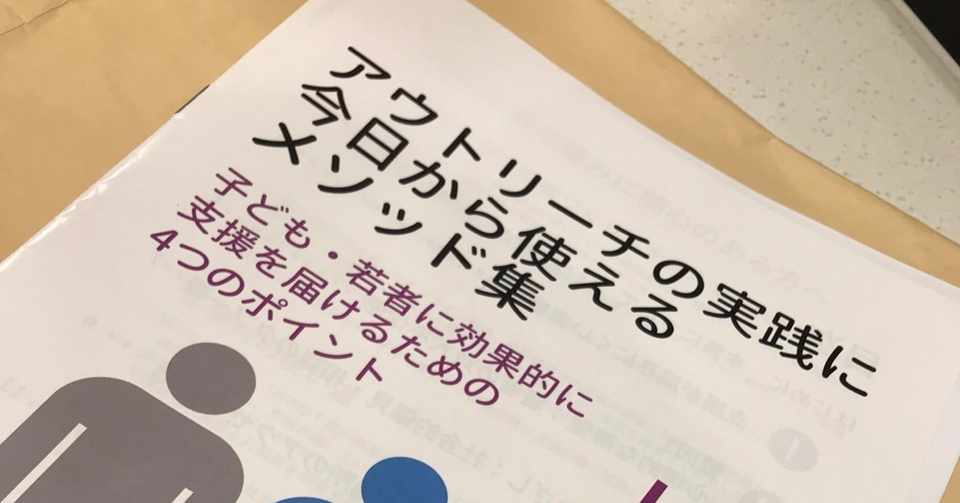 アウトリーチの実践に
今日から使える
メソッド集
子ども・若者に効果的に
支援を届けるための
4つのポイント